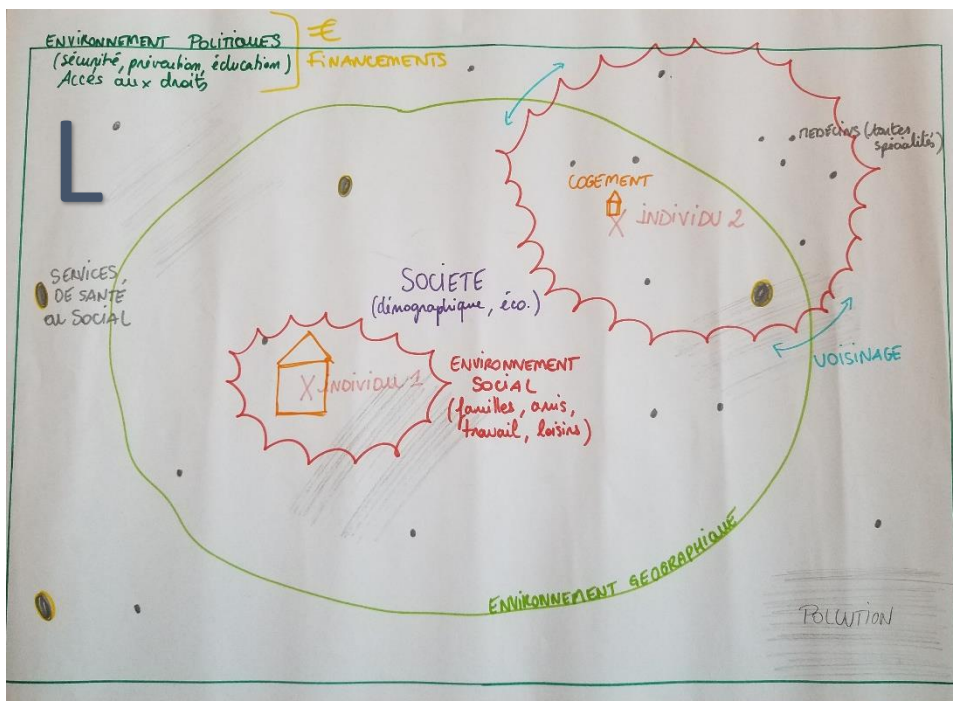 ENVIRONNEMENT POLITIQUES
(sécurité, prévention, éducation)
Accès aux droits
= €
FINANCEMENTS
L
MEDECINS (toutes
spécialités)
LOGEMENT
X INDIVIDU 2
SERVICES
DE SANTÉ
ou SOCIAL
SOCIETE
(démographique, éco.)
VOISINAGE
X INDIVIDU 1
ENVIRONNEMENT
SOCIAL
(familles, amis,
travail, loisirs)
ENVIRONNEMENT GEOGRAPHIQUE
POLLUTION